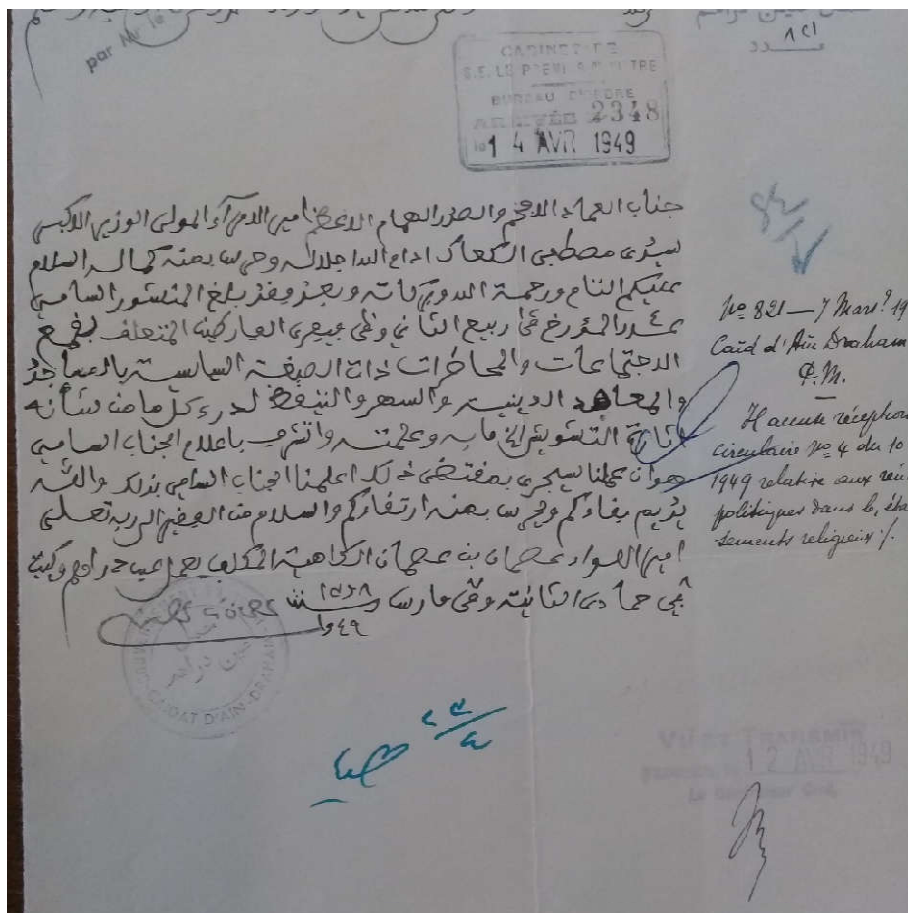 par
عدد
CABINET DE
S.E. LE PREMIER MINISTRE
BUREAU D'ORDRE
ARRIVÉE 2348
le 14 AVR 1949
جناب العماد الافخم والصدر الهمام الاعظم امير الامرآء المولى الوزير الاكبر
سيدي مصطفى الكعاك ادام الله اجلاله وحرس بمنه كماله السلام
عليكم التام ورحمة الله وبركاته وبعد فقد بلغ المنشور السامي
عدد المؤرخ في ربيع الثاني وفي فيفري الفاركين المتعلق بقمع
الاجتماعات والمحاضرات ذات الصبغة السياسية بالمساجد
والمعاهد الدينية والسهر والتيقظ لدرء كل ما من شأنه
اثارة التشويش الى ما به وعلمته واتشرف باعلام الجناب السامي
هو ان عملنا سيجري بمقتضى ذلك اعلمنا الجناب السامي بذلك والله
يديم بقاءكم ويحرس بمنه ارتقاءكم والسلام من الفقير الى ربه تعالى
امير اللواء عصمان بن عصمان الكاهية المكلف بعمل عين دراهم وكتب
في جمادى الثانية وفي مارس سنة ١٣٦٨
١٩٤٩
No 821 — 7 Mars 19
Caïd d'Aïn Draham
P.M.
Accuse réception
circulaire No 4 du 10
1949 relative aux réu
politiques dans les éta
sements religieux ./.
CAIDAT D'AIN-DRAHAM
VU ET TRANSMIS
12 AVR 1949